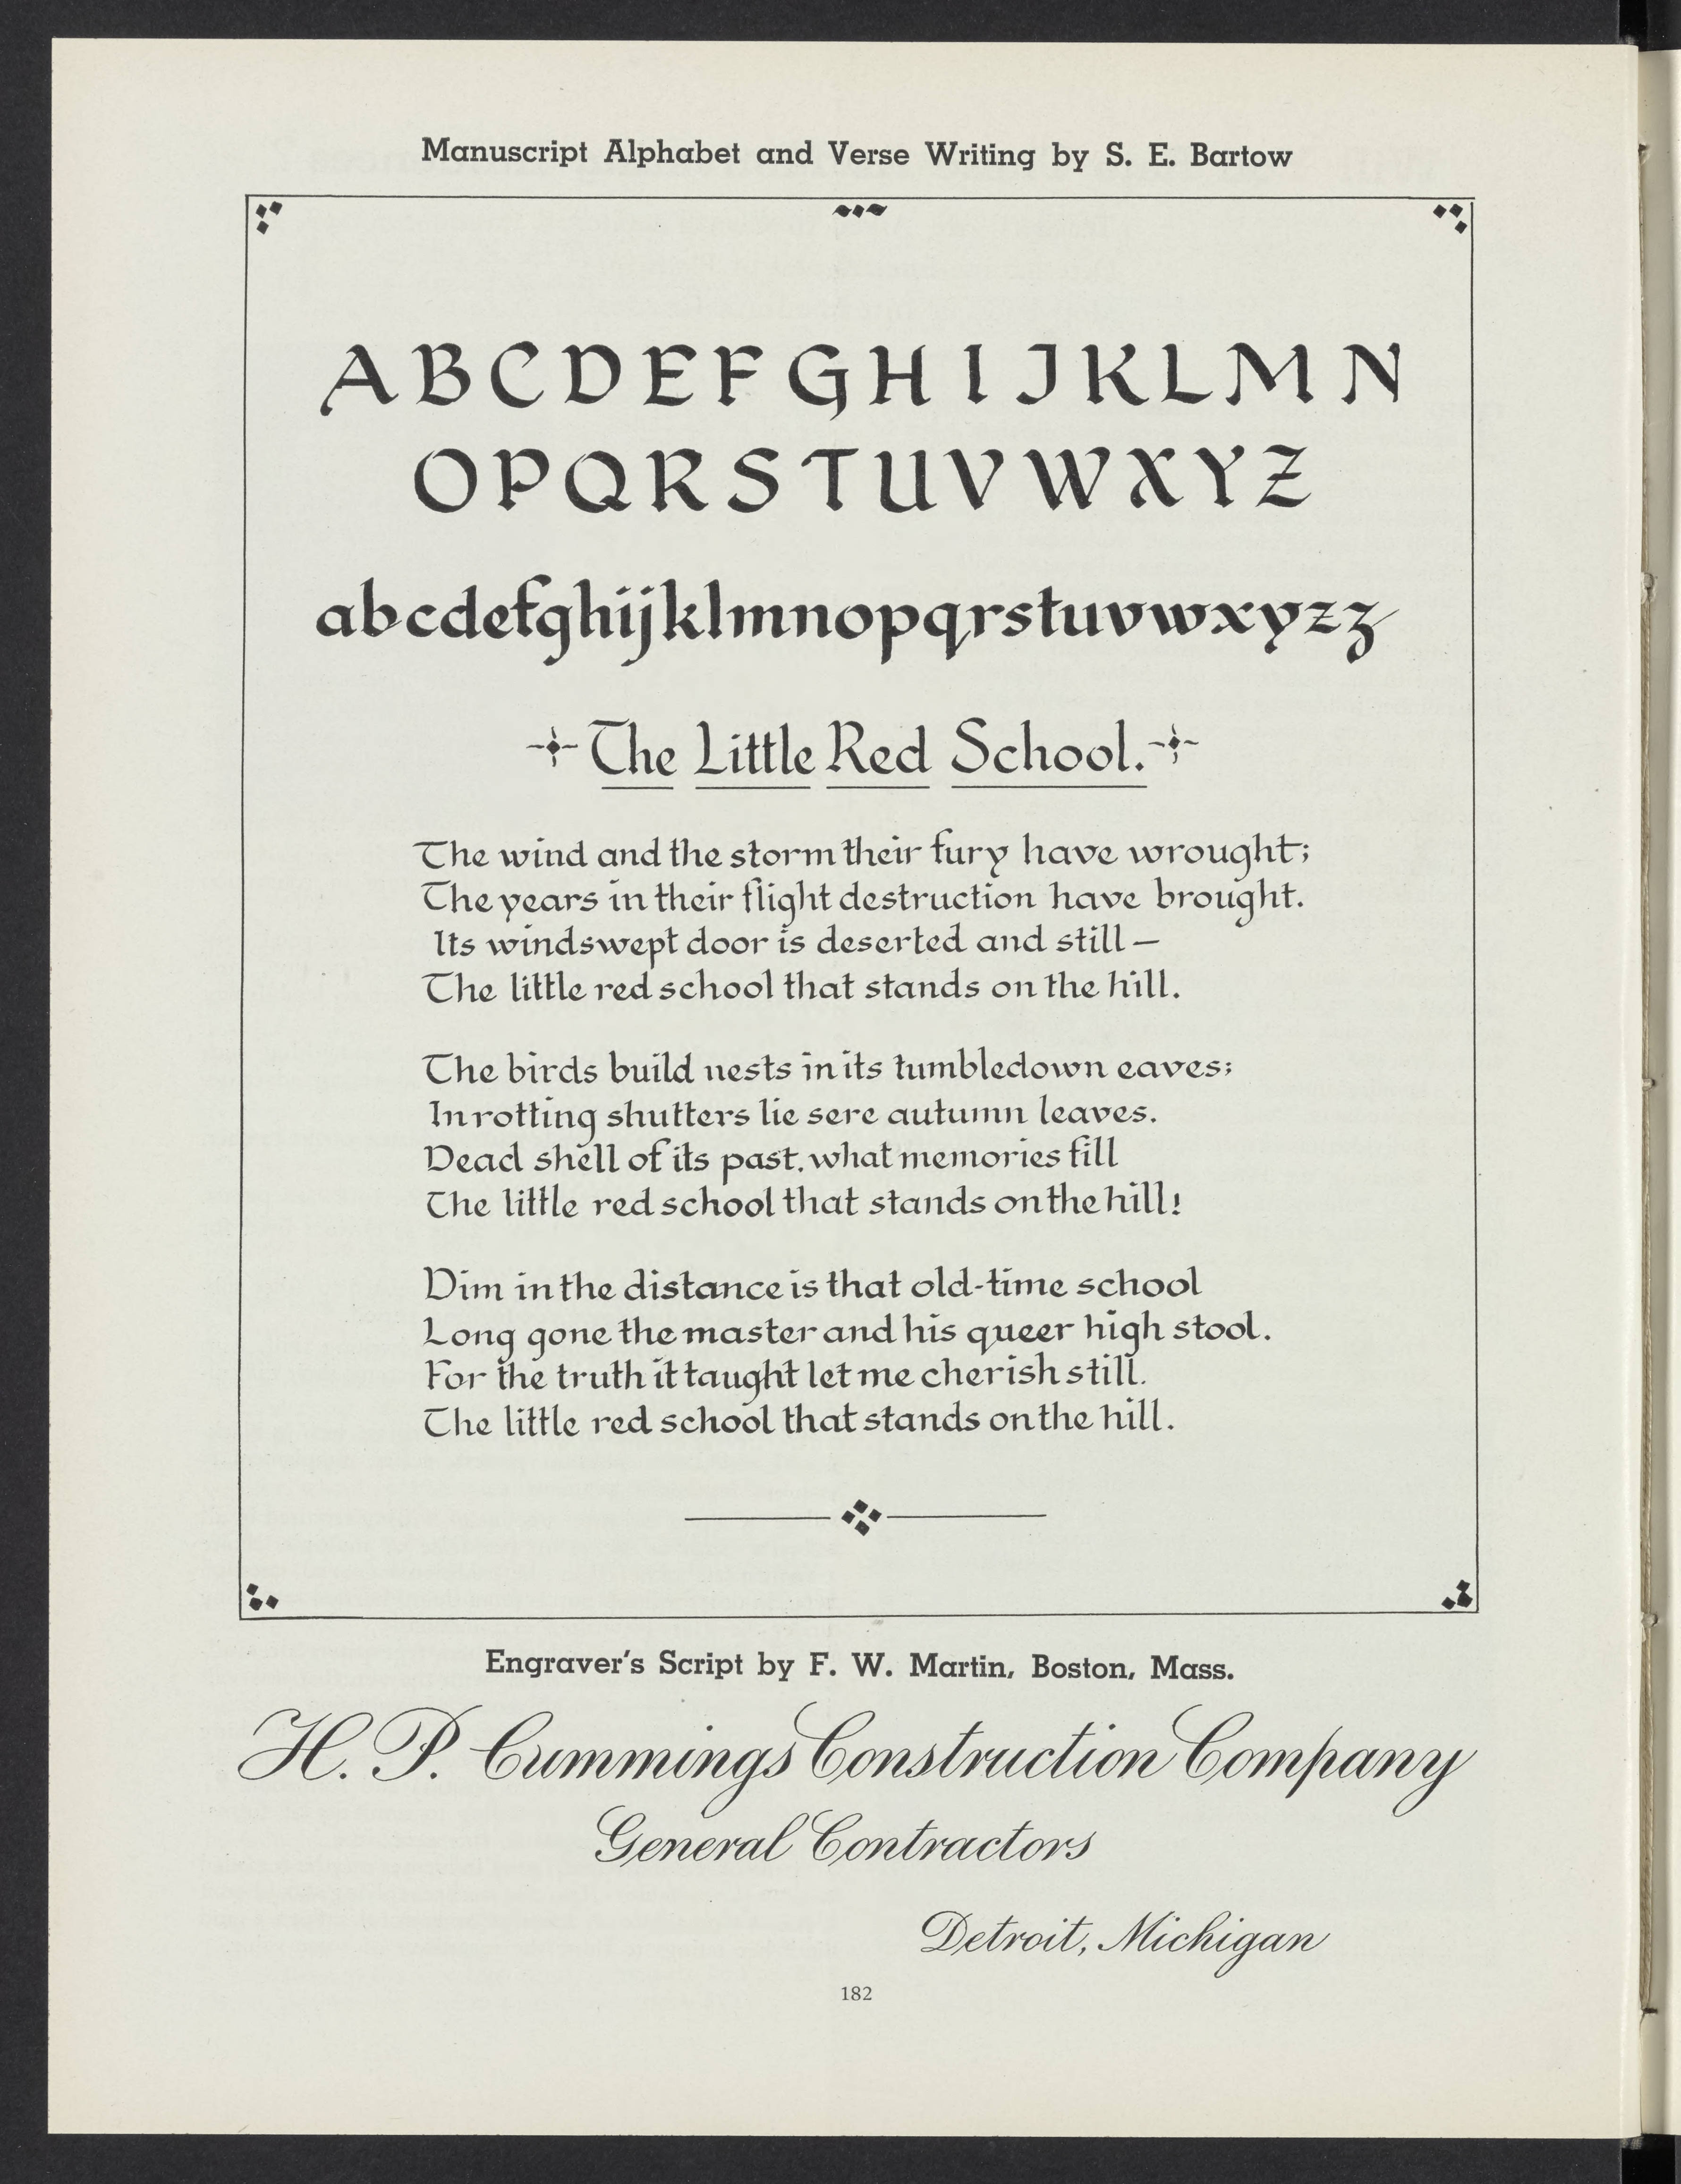 Manuscript Alphabet and Verse Writing by S. E. Bartow
A B C D E F G H I J K L M N
O P Q R S T U V W X Y Z
abcdefghijklmnopqrstuvwxyzz
The Little Red School.
The wind and the storm their fury have wrought;
The years in their flight destruction have brought.
Its windswept door is deserted and still —
The little red school that stands on the hill.
The birds build nests in its tumbledown eaves;
In rotting shutters lie sere autumn leaves.
Dead shell of its past, what memories fill
The little red school that stands on the hill!
Dim in the distance is that old-time school
Long gone the master and his queer high stool.
For the truth it taught let me cherish still.
The little red school that stands on the hill.
Engraver's Script by F. W. Martin, Boston, Mass.
H. P. Cummings Construction Company
General Contractors
Detroit, Michigan
182